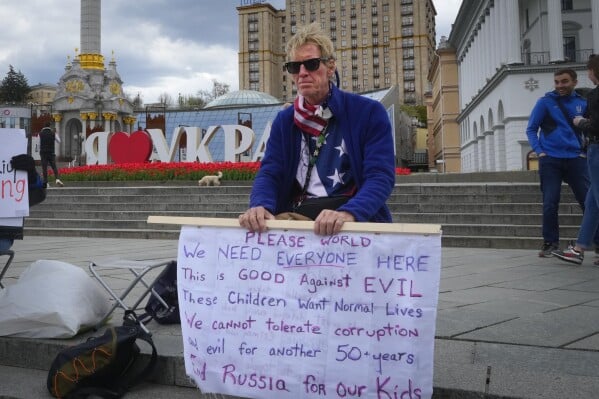 Я ❤ УКРА
PLEASE WORLD
We NEED EVERYONE HERE
This is GOOD Against EVIL
These Children Want Normal Lives
We cannot tolerate corruption
and evil for another 50+years
End Russia for our Kids